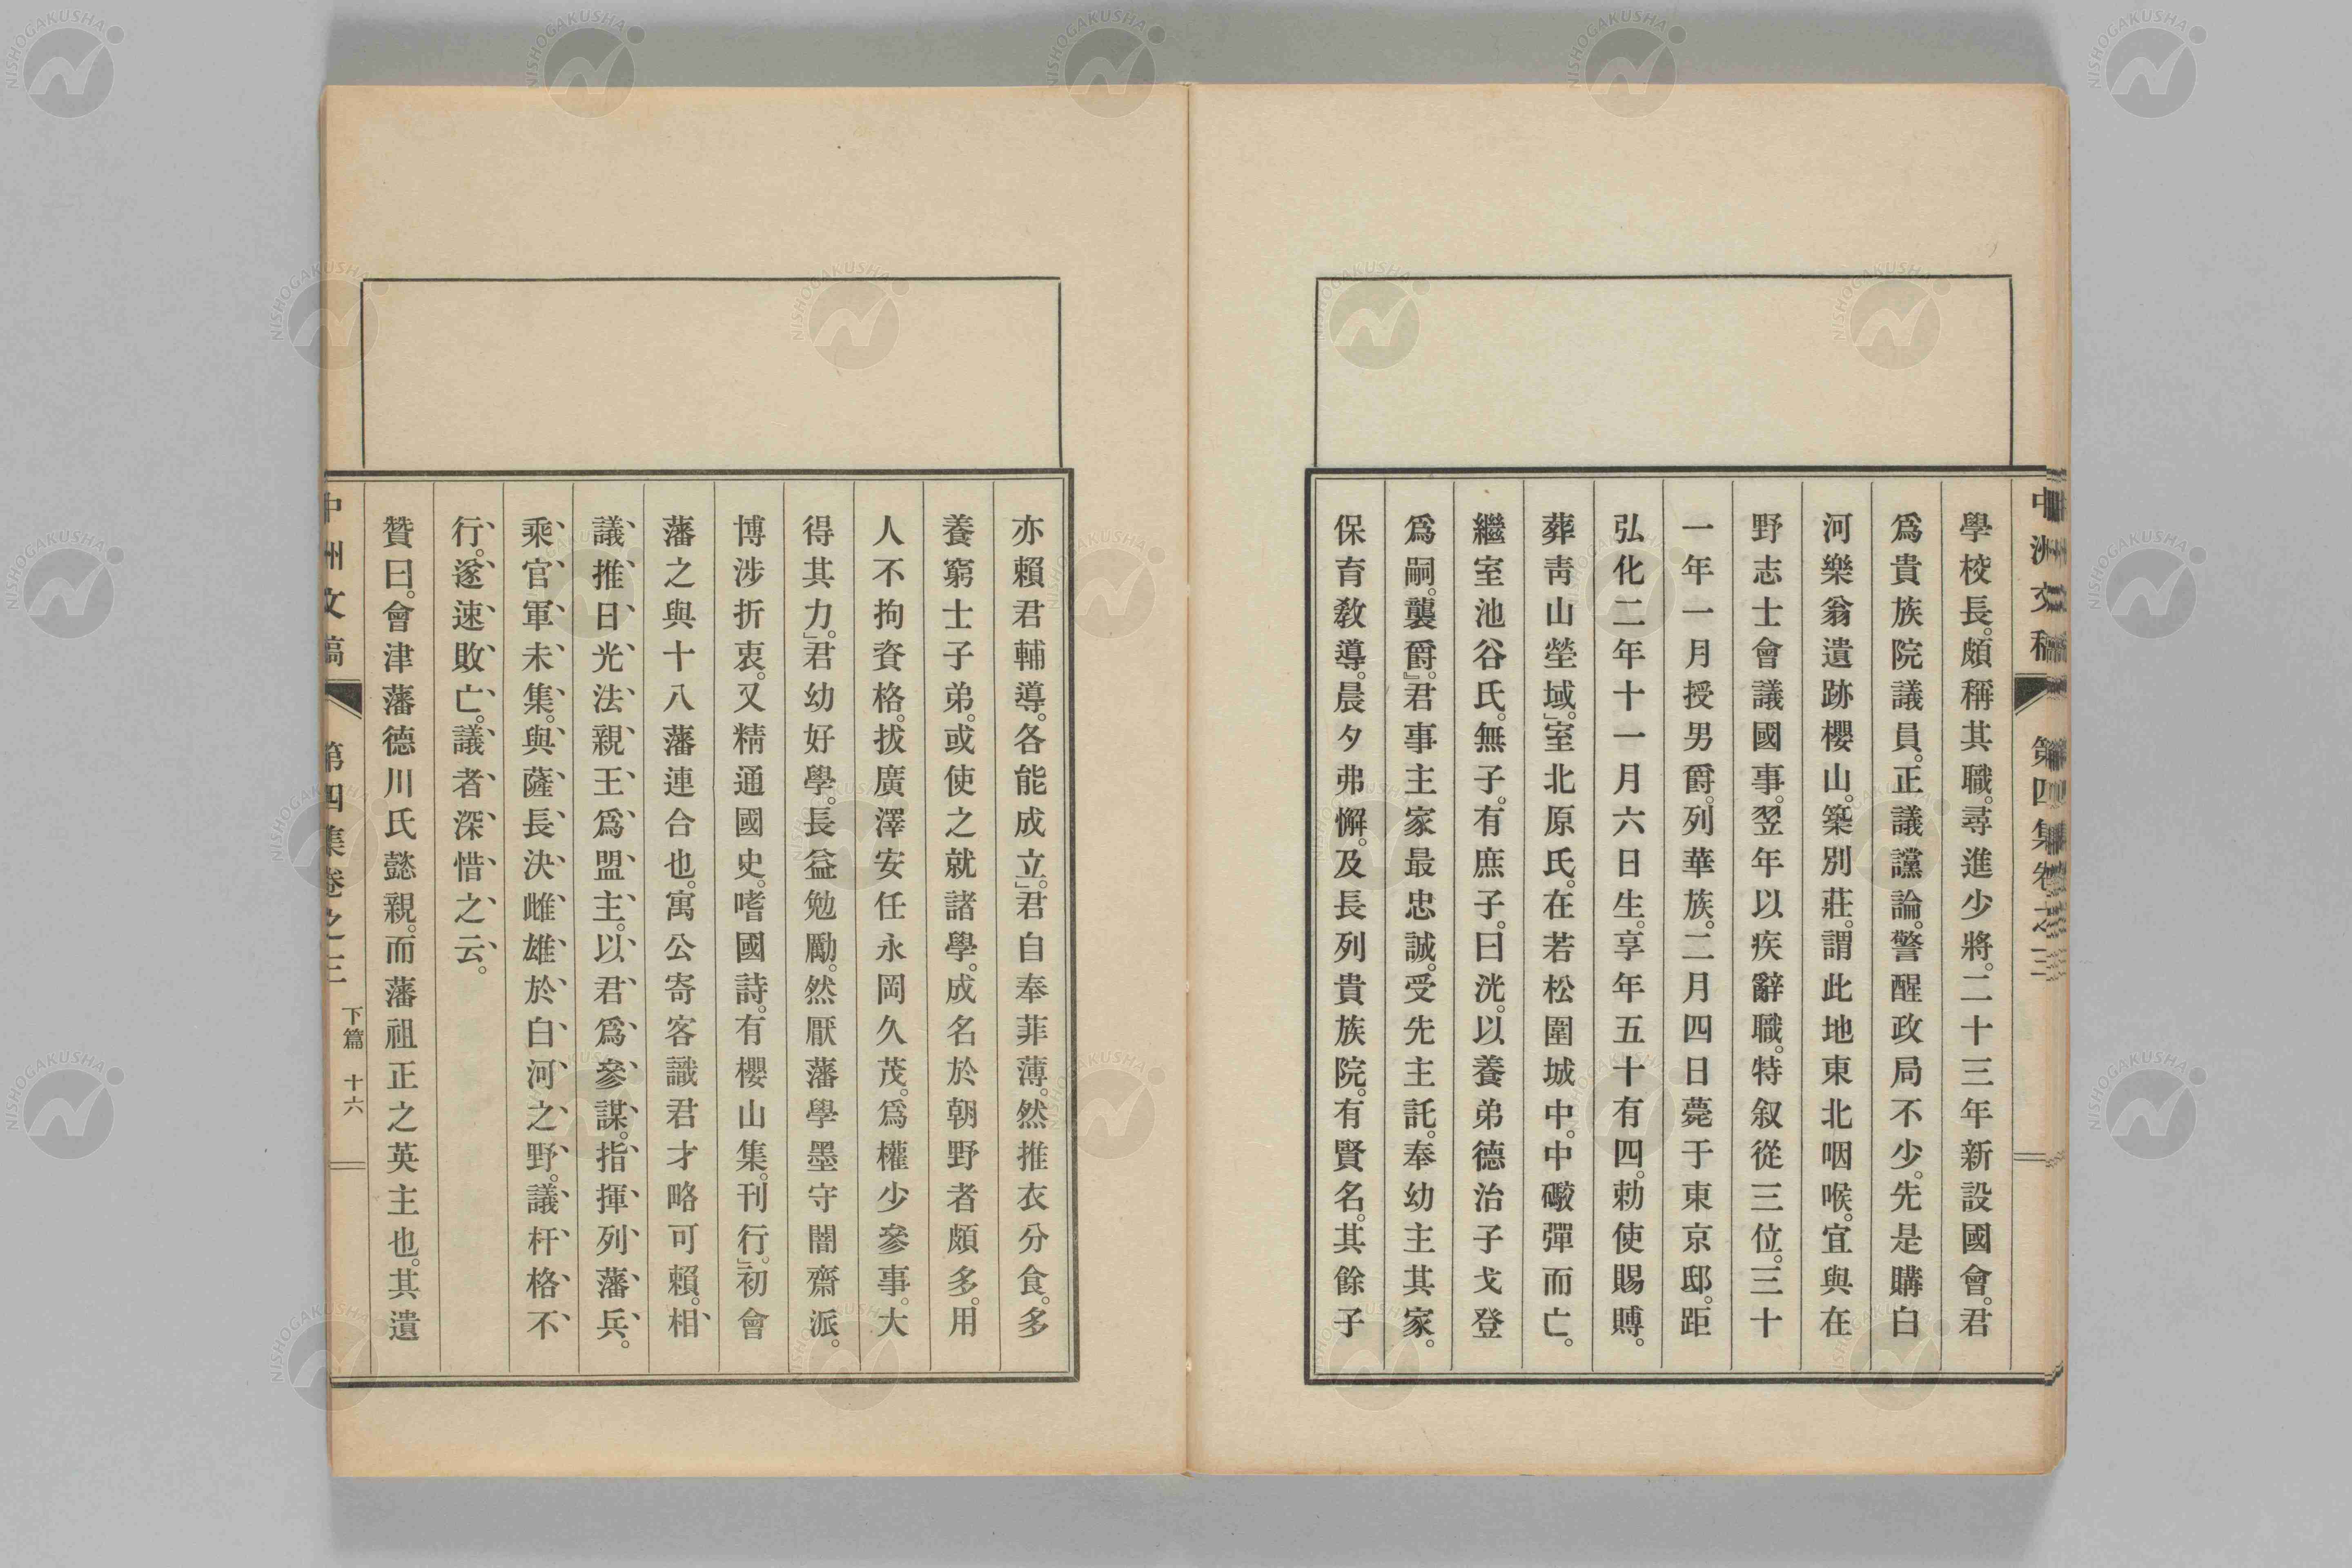 中洲文稿 第四集卷之三
學校長。頗稱其職。尋進少將。二十三年新設國會。君
爲貴族院議員。正議讜論。警醒政局不少。先是購白
河樂翁遺跡櫻山。築別莊。謂此地東北咽喉。宜與在
野志士會議國事。翌年以疾辭職。特叙從三位。三十
一年一月授男爵。列華族。二月四日薨于東京邸。距
弘化二年十一月六日生。享年五十有四。勅使賜賻。
葬靑山塋域。」室北原氏。在若松圍城中。中礮彈而亡。
繼室池谷氏。無子。有庶子。曰洸。以養弟德治子戈登
爲嗣。襲爵。』君事主家最忠誠。受先主託。奉幼主其家。
保育敎導。晨夕弗懈。及長列貴族院。有賢名。其餘子
亦賴君輔導。各能成立。」君自奉菲薄。然推衣分食。多
養窮士子弟。或使之就諸學。成名於朝野者頗多。用
人不拘資格。拔廣澤安任永岡久茂。爲權少參事。大
得其力。」君幼好學。長益勉勵。然厭藩學墨守闇齋派。
博涉折衷。又精通國史。嗜國詩。有櫻山集。刊行。」初會
藩之與十八藩連合也。寓公寄客識君才略可賴。相、
議、推、日、光、法、親、王、爲、盟、主。以、君、爲、參、謀。指、揮、列、藩、兵。
乘、官、軍、未、集。與、薩、長、決、雌、雄、於、白、河、之、野。議、杆、格、不、
行。遂、速、敗、亡。議、者、深、惜、之、云。
贊曰。會津藩德川氏懿親。而藩祖正之英主也。其遺
中洲文稿 第四集卷之三 下篇 十六
NISHOGAKUSHA